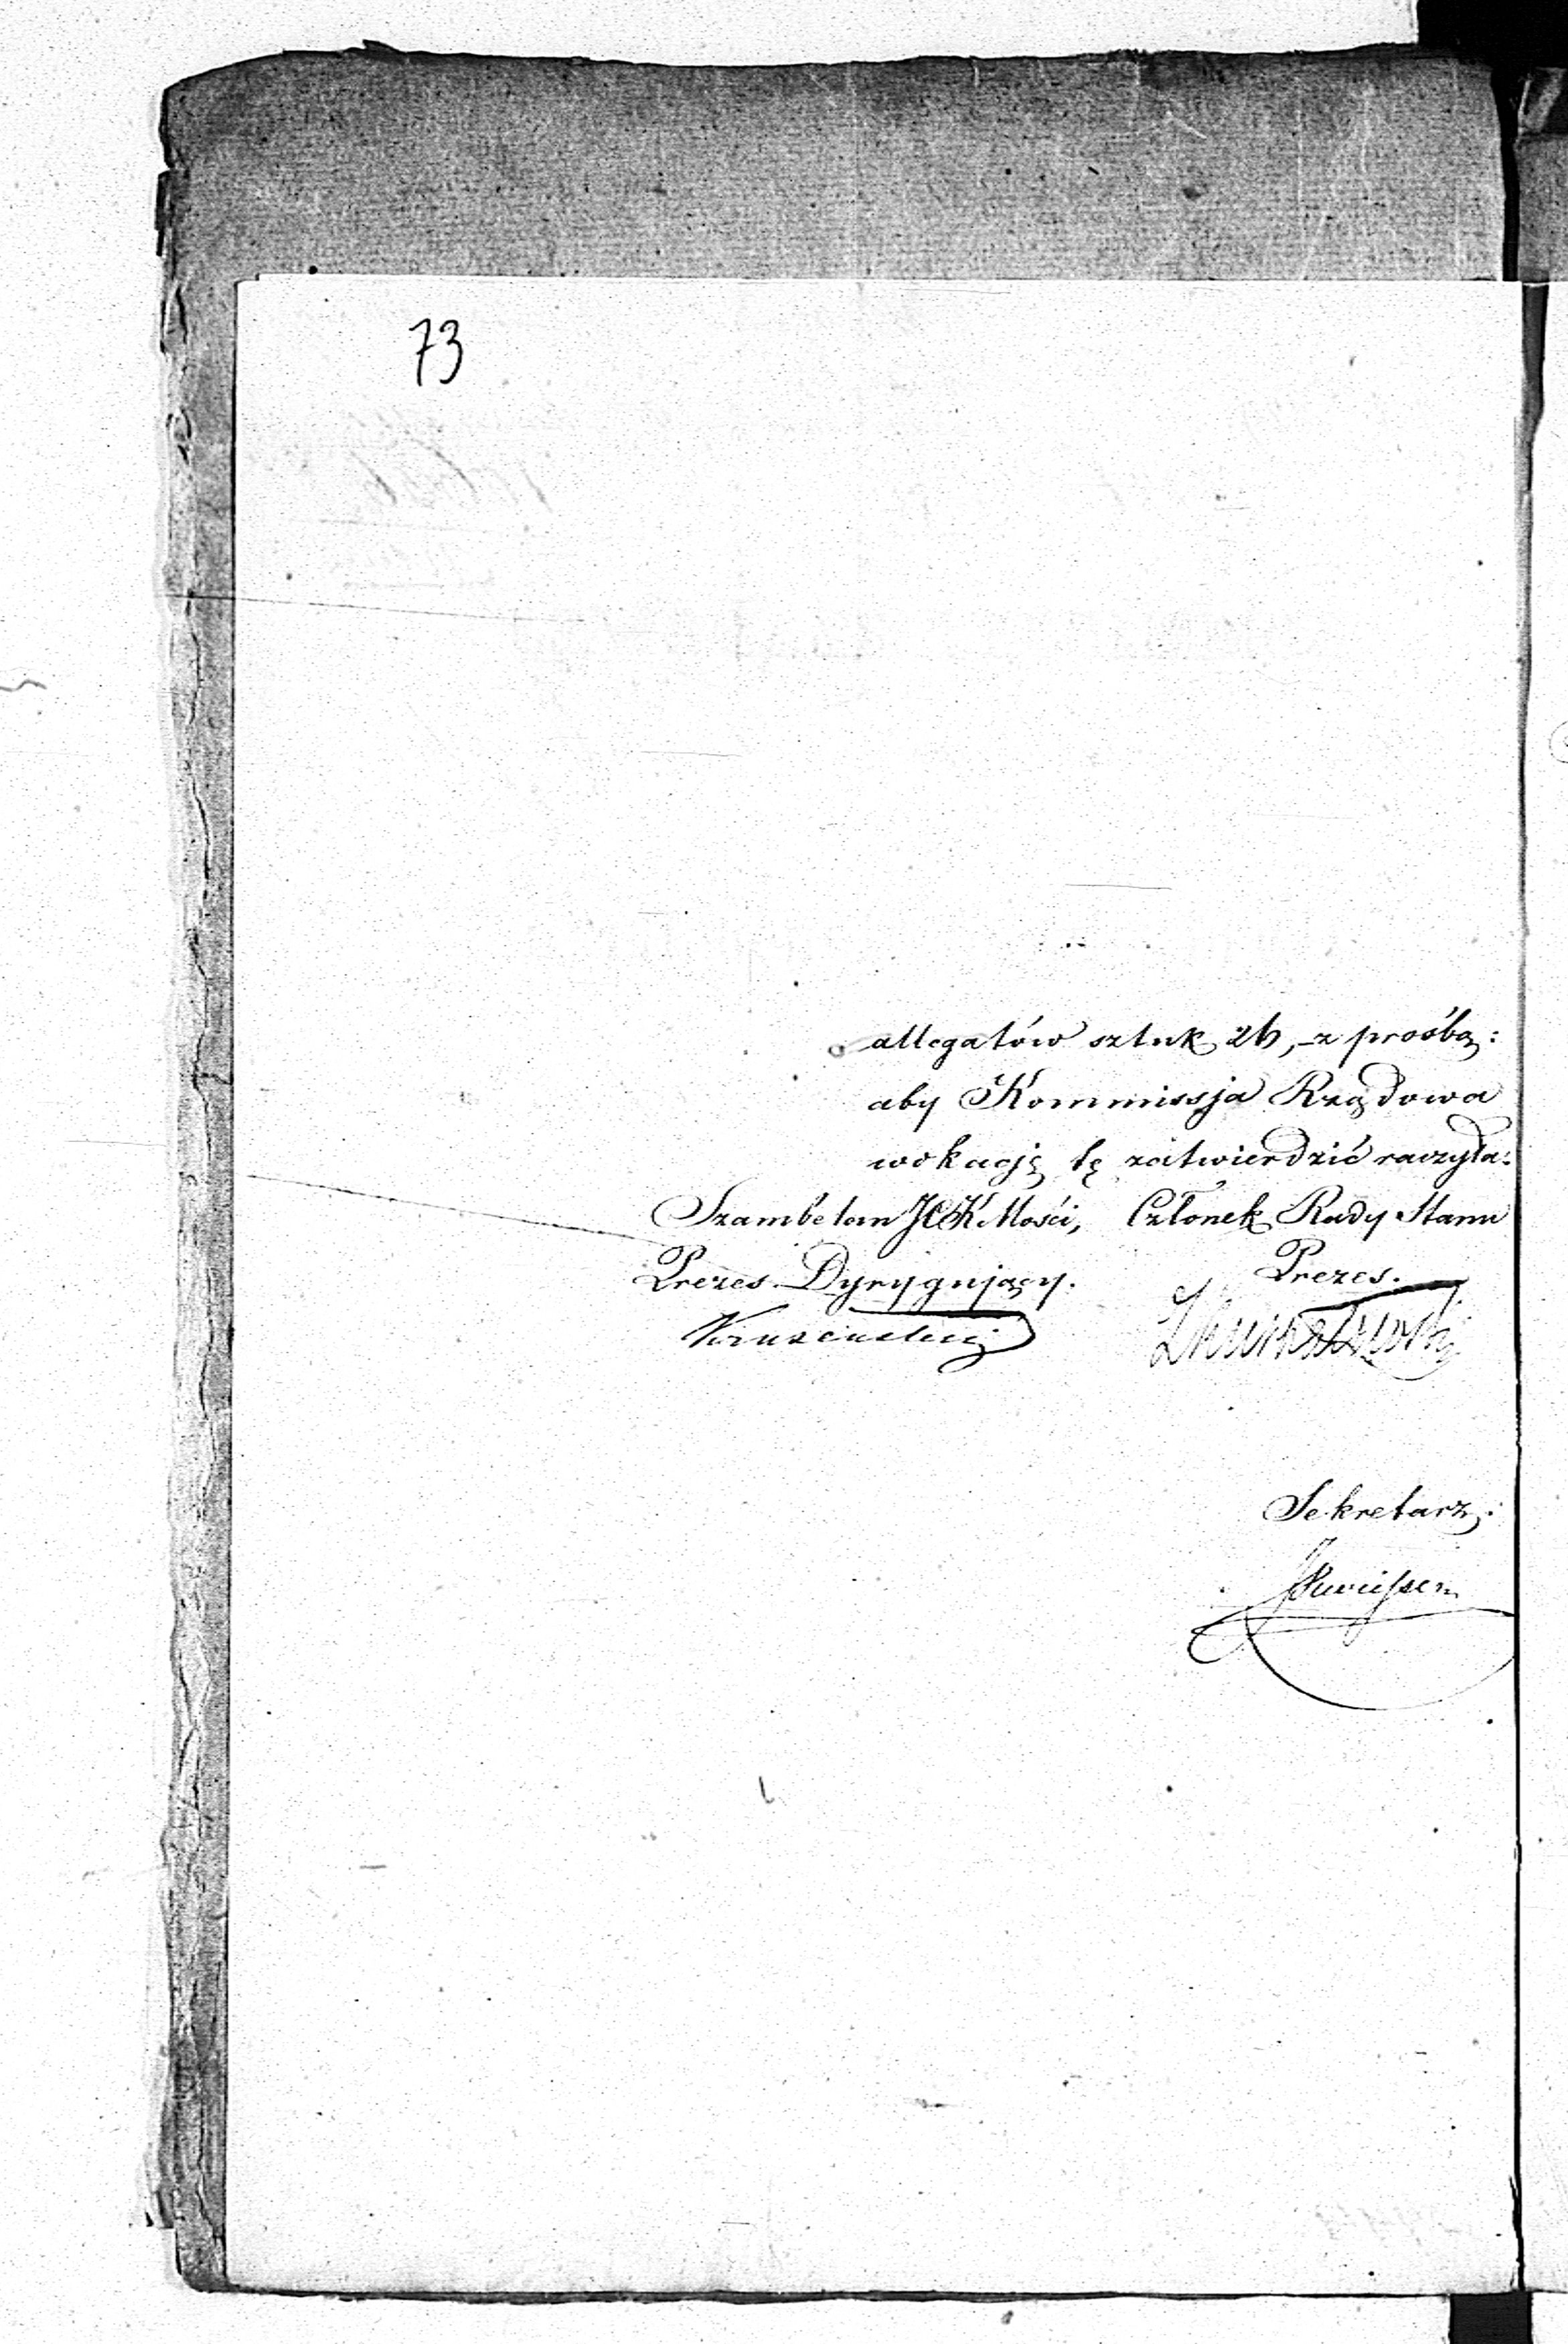 73
allegatów sztuk 26, z prośbą:
aby Kommissja Rządowa
wokacją tę zatwierdzić raczyła:
Szambelan JCK Mości, Członek Rady Stanu
Prezes Dyrygujący. Prezes.
Sekretarz: